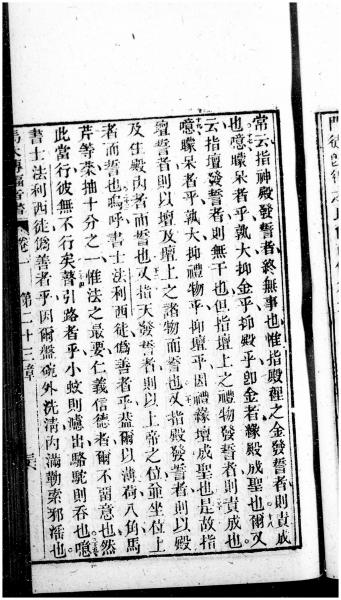 常云指神殿發誓者終無事也惟指殿裡之金發誓者則責成
也噫矇呆者乎孰大抑金乎抑殿乎卽金者緣殿成聖也爾又
云指壇發誓者則無干也但指壇上之禮物發誓者則責成也
噫矇呆者乎孰大抑禮物乎抑壇乎因禮緣壇成聖也是故指
壇誓者則以壇及壇上之諸物而誓也又指殿發誓者則以殿
及住殿內者而誓也又指天發誓者則以上帝之位並坐位上
者而誓也嗚呼書士法利西徒爲善者乎蓋爾以薄荷八角馬
芹等菜抽十分之一惟法之最要仁義信德者爾不留意也然
此當行彼無不行矣瞽引路者乎小蚊則濾出駱駝則吞也噫
書士法利西徒爲善者乎因爾盤碗外洗淸內滿勒索邪淫也
馬 傳福音書 卷一 第二十三章